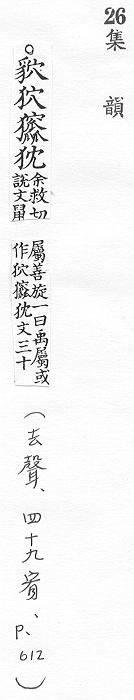 26
集韻
○貁狖
余救切
說文鼠
屬善旋一曰禺屬或
作狖文三十
(去聲、四十九宥、P.612)